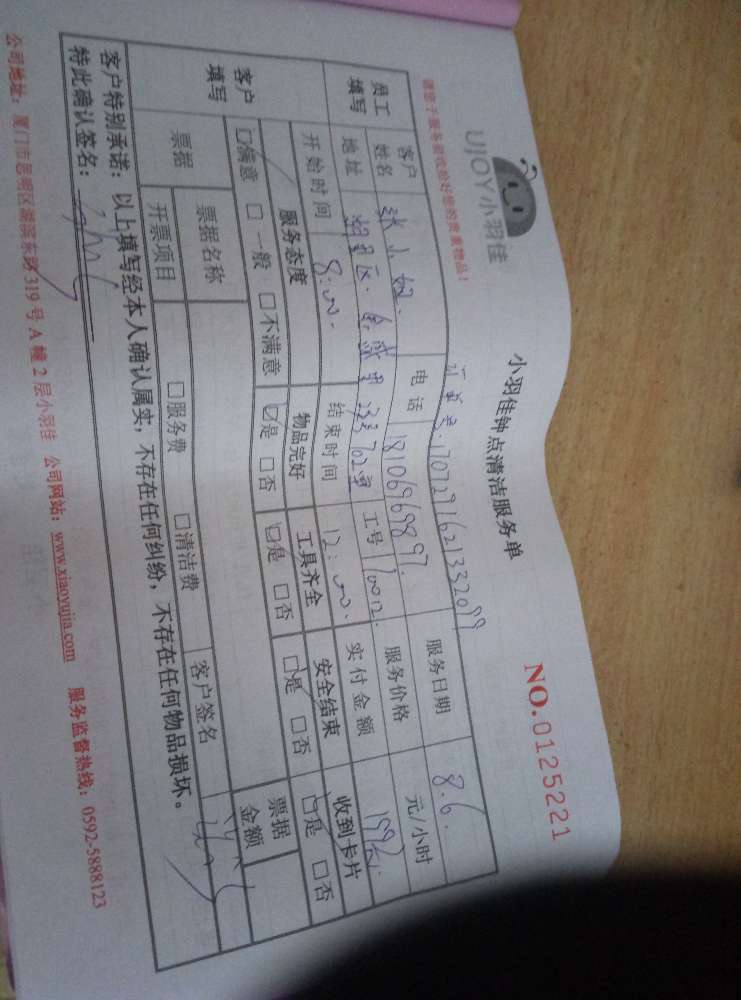 UJOY小羽佳
小羽佳钟点清洁服务单
NO.0125221
请您于服务前收拾好您的贵重物品！
订单号:17072916213320
员工填写
客户姓名 张小姐 电话 18106969897 服务日期 8.6.
地址 湖里区 里 233 702室 工号 70012 服务价格 元/小时
开始时间 8:00. 结束时间 12:00. 实付金额 199元
客户填写
服务态度 物品完好 工具齐全 安全结束 收到卡片
☑满意 □一般 □不满意 ☑是 □否 ☑是 □否 ☑是 □否 ☑是 □否
票据 票据名称 票据金额
开票项目 □服务费 □清洁费 客户签名
客户特别承诺：以上填写经本人确认属实，不存在任何纠纷，不存在任何物品损坏。
特此确认签名：
公司地址：厦门市思明区湖滨东路319号A幢2层小羽佳 公司网站：www.xiaoyujia.com 服务监督热线：0592-5888123